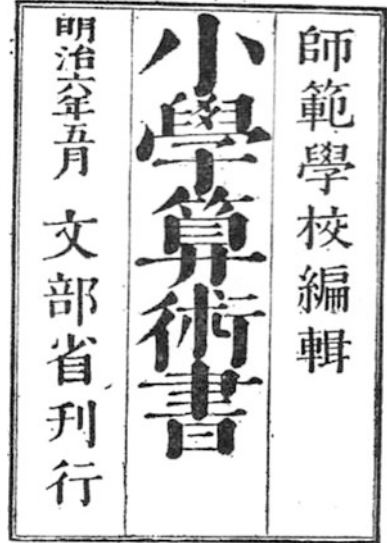 師範學校編輯
小學算術書
明治六年五月 文部省刊行